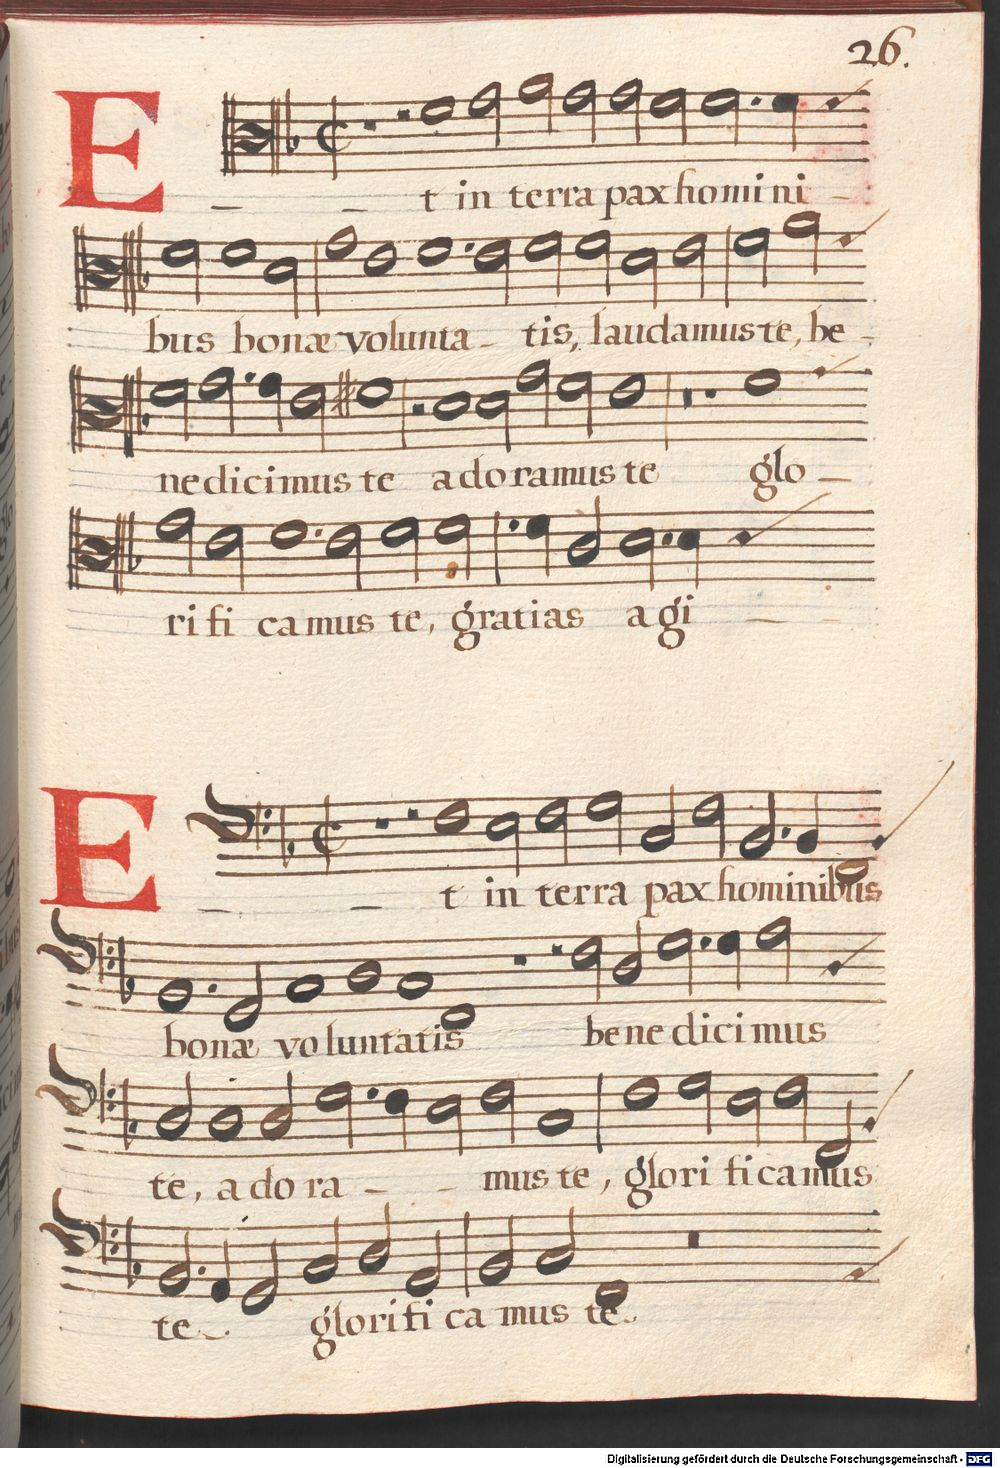 26.
E
t in terra pax homini
bus bonæ voluntatis, laudamus te, be
nedicimus te adoramus te glo
rifi camus te, gratias agi
E
t in terra pax hominibus
bonæ voluntatis benedicimus
te, adora mus te, glorificamus
te. glorificamus te.
Digitalisierung gefördert durch die Deutsche Forschungsgemeinschaft - DFG